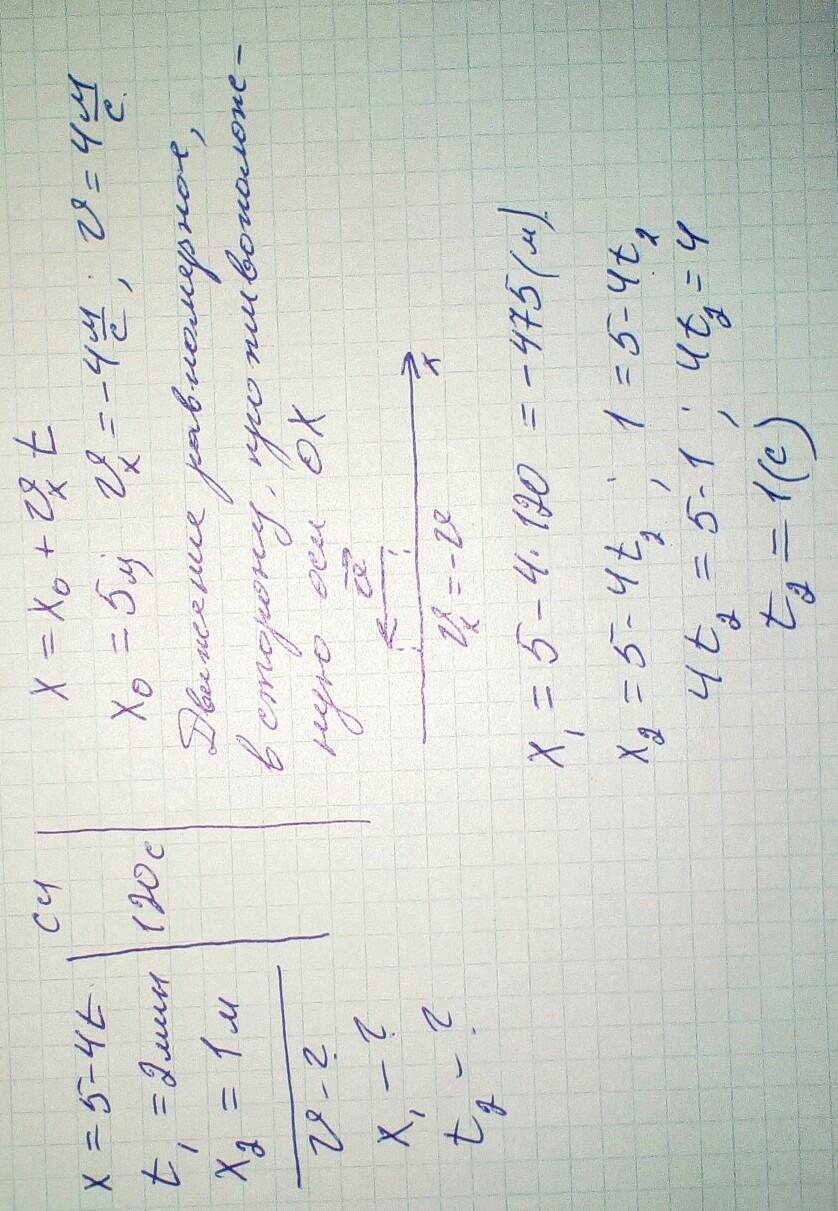 x = 5-4t
t₁ = 2мин
x₂ = 1м
v - ?
x₁ - ?
t₂ - ?
СИ
120с
x = x₀ + vₓt
x₀ = 5м; vₓ = -4 м/с; v = 4 м/с
Движение равномерное,
в сторону, противополож-
ную оси ОХ
v⃗
x
vₓ = -v
x₁ = 5 - 4 · 120 = -475(м)
x₂ = 5 - 4t₂; 1 = 5 - 4t₂
4t₂ = 5-1; 4t₂ = 4
t₂ = 1(с)